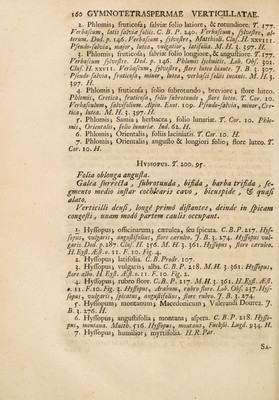 160 GYMNOTETRASPERMAE VERTICILLATAE.
2. Phlomis, fruticosa, salviæ folio latiore, & rotundiore. T. 177.
Verbascum, latis salviæ foliis. C. B. P. 240. Verbascum, sylvestre, al-
terum. Dod. p. 146. Verbascum, sylvestre, Matthioli. Clus. H. XXVIII.
Pseudo-salvia, major, lutea, vulgatior, latifolia. M. H. 3. 397. H.
3. Phlomis, fruticosa, salviæ folio longiore, & angustiore. T. 177.
Verbascum sylvestre. Dod. p. 146. Phlomis lychnitis. Lob. Obs. 301.
Clus. H. XXVII. Verbascum, sylvestre, flore luteo hiante. J. B. 2. 307.
Pseudo salvia, fruticosa, minor, lutea, verbasci foliis incanis. M. H. 3.
397. H.
4. Phlomis, fruticosa, folio subrotundo, breviore, flore luteo.
Phlomis, Cretica, fruticosa, folio subrotundo, flore luteo. T. Cor. 10.
Verbasculum, salvifolium. Alpin. Exot. 109. Pseudo-salvia, minor, Cre-
tica, lutea. M. H. 3. 397. H.
5. Phlomis, Samia, herbacea, folio lunariæ. T. Cor. 10. Phlo-
mis, Orientalis, folio lunariæ. Ind. 62. H.
6. Phlomis, Orientalis, foliis laciniatis. T. Cor. 10. H.
7. Phlomis, Orientalis, angusto & longiori folio, flore luteo. T.
Cor. 10. H.
HYSSOPUS. T. 200. 95.
Folia oblonga angusta.
Galea surrecta, subrotunda, bifida, barba trifida, se-
gmento medio instar cochlearis cavo, bicuspide, & quasi
alato.
Verticilli densi, longè primò distantes, deinde in spicam
congesti, unam modò partem caulis occupant.
1. Hyssopus, officinarum, cærulea, seu spicata. C. B. P. 217. Hys-
sopus, vulgaris, angustifolius, flore cæruleo. J. B. 3. 274. Hyssopus vul-
garis. Dod. p. 287. Clus. H. 356. M. H. 3. 361. Hyssopus, flore cæruleo.
H. Eyst. Æst. o. 11. F. 10. Fig. 4.
2. Hyssopus, latifolia. C. B. Prodr. 107.
3. Hyssopus, vulgaris, alba. C. B. P. 218. M. H. 3. 361. Hyssopus,
flore albo. H. Eyst. Æst. o. 11. F. 10. Fig. 2.
4. Hyssopus, rubro flore. C. B. P. 217. M. H. 3. 361. H. Eyst. Æst.
o. 11. F. 10. Fig. 3. Hyssopus, Arabum, rubro flore. Lob. Obs. 237. Hys-
sopus, vulgaris, spicatus, angustifolius, flore rubro. J. B. 3. 274.
5. Hyssopum; montanum, Macedonicum, Valerandi Dourez. J.
B. 3. 276. H.
6. Hyssopus, angustifolia, montana, aspera. C. B. P. 218. Hysso-
pus, montana. Matth. 516. Hyssopus, montana, Fuchsii. Lugd. 934. H.
7. Hyssopus, humilior, myrtifolia. H. R. Par.
SA-